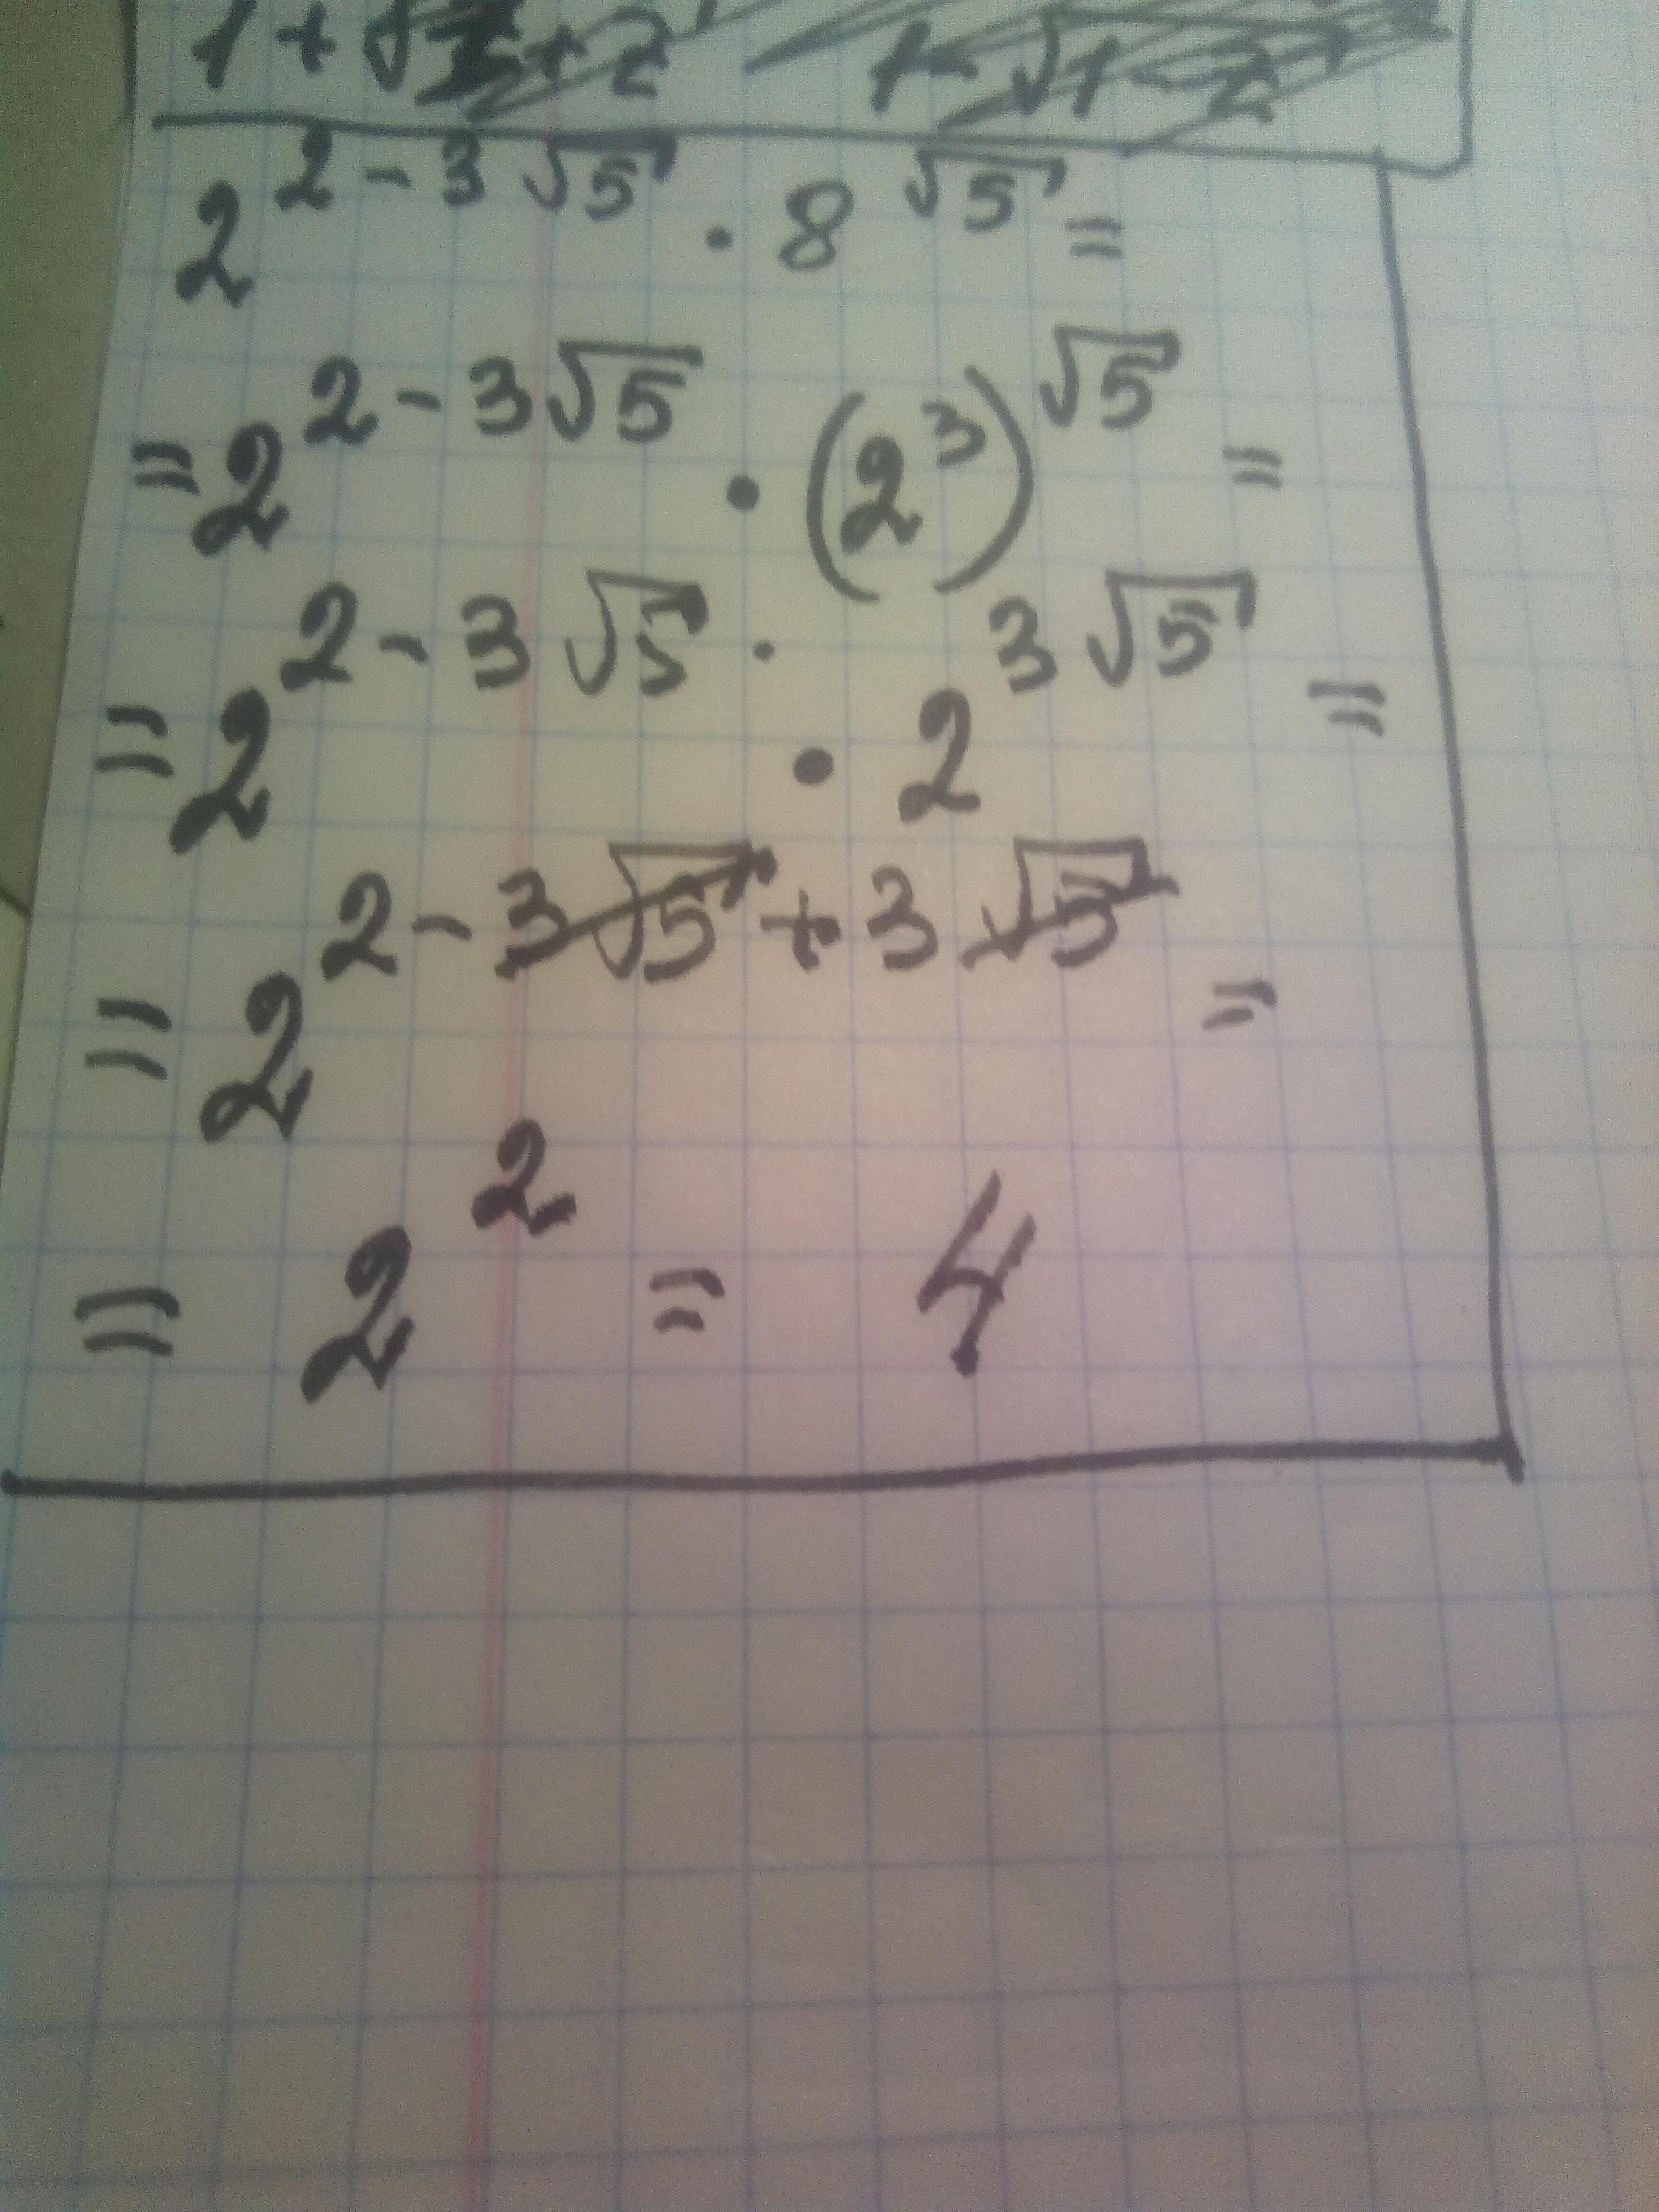 2^{2-3√5} · 8^{√5} =
= 2^{2-3√5} · (2^3)^{√5} =
= 2^{2-3√5} · · 2^{3√5} =
= 2^{2-3√5+3√5} =
= 2^2 = 4